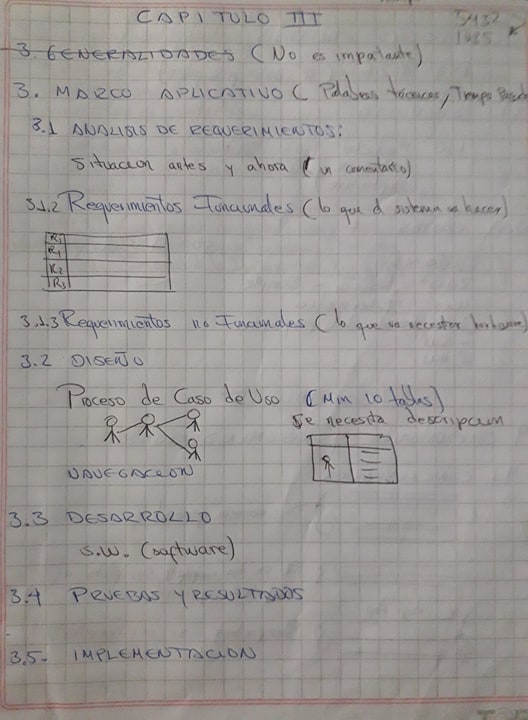 CAPITULO III
3. GENERALIDADES (No es impaltante)
3. MARCO APLICATIVO ( Palabras tecnicas, Tiempo Pasado
3.1 ANALISIS DE REQUERIMIENTOS:
Situacion antes y ahora ( un comentario)
3.1.2 Requerimientos Funcionales ( lo que el sistema va hacer)
R1
R1
R2
R3
3.1.3 Requerimientos no Funcionales ( lo que va necesitar hardware)
3.2 DISEÑO
Proceso de Caso de Uso (Min 10 tablas)
Se necesita descripcion
NAVEGACION
3.3 DESARROLLO
S.W. (software)
3.4 PRUEBAS Y RESULTADOS
3.5- IMPLEMENTACION